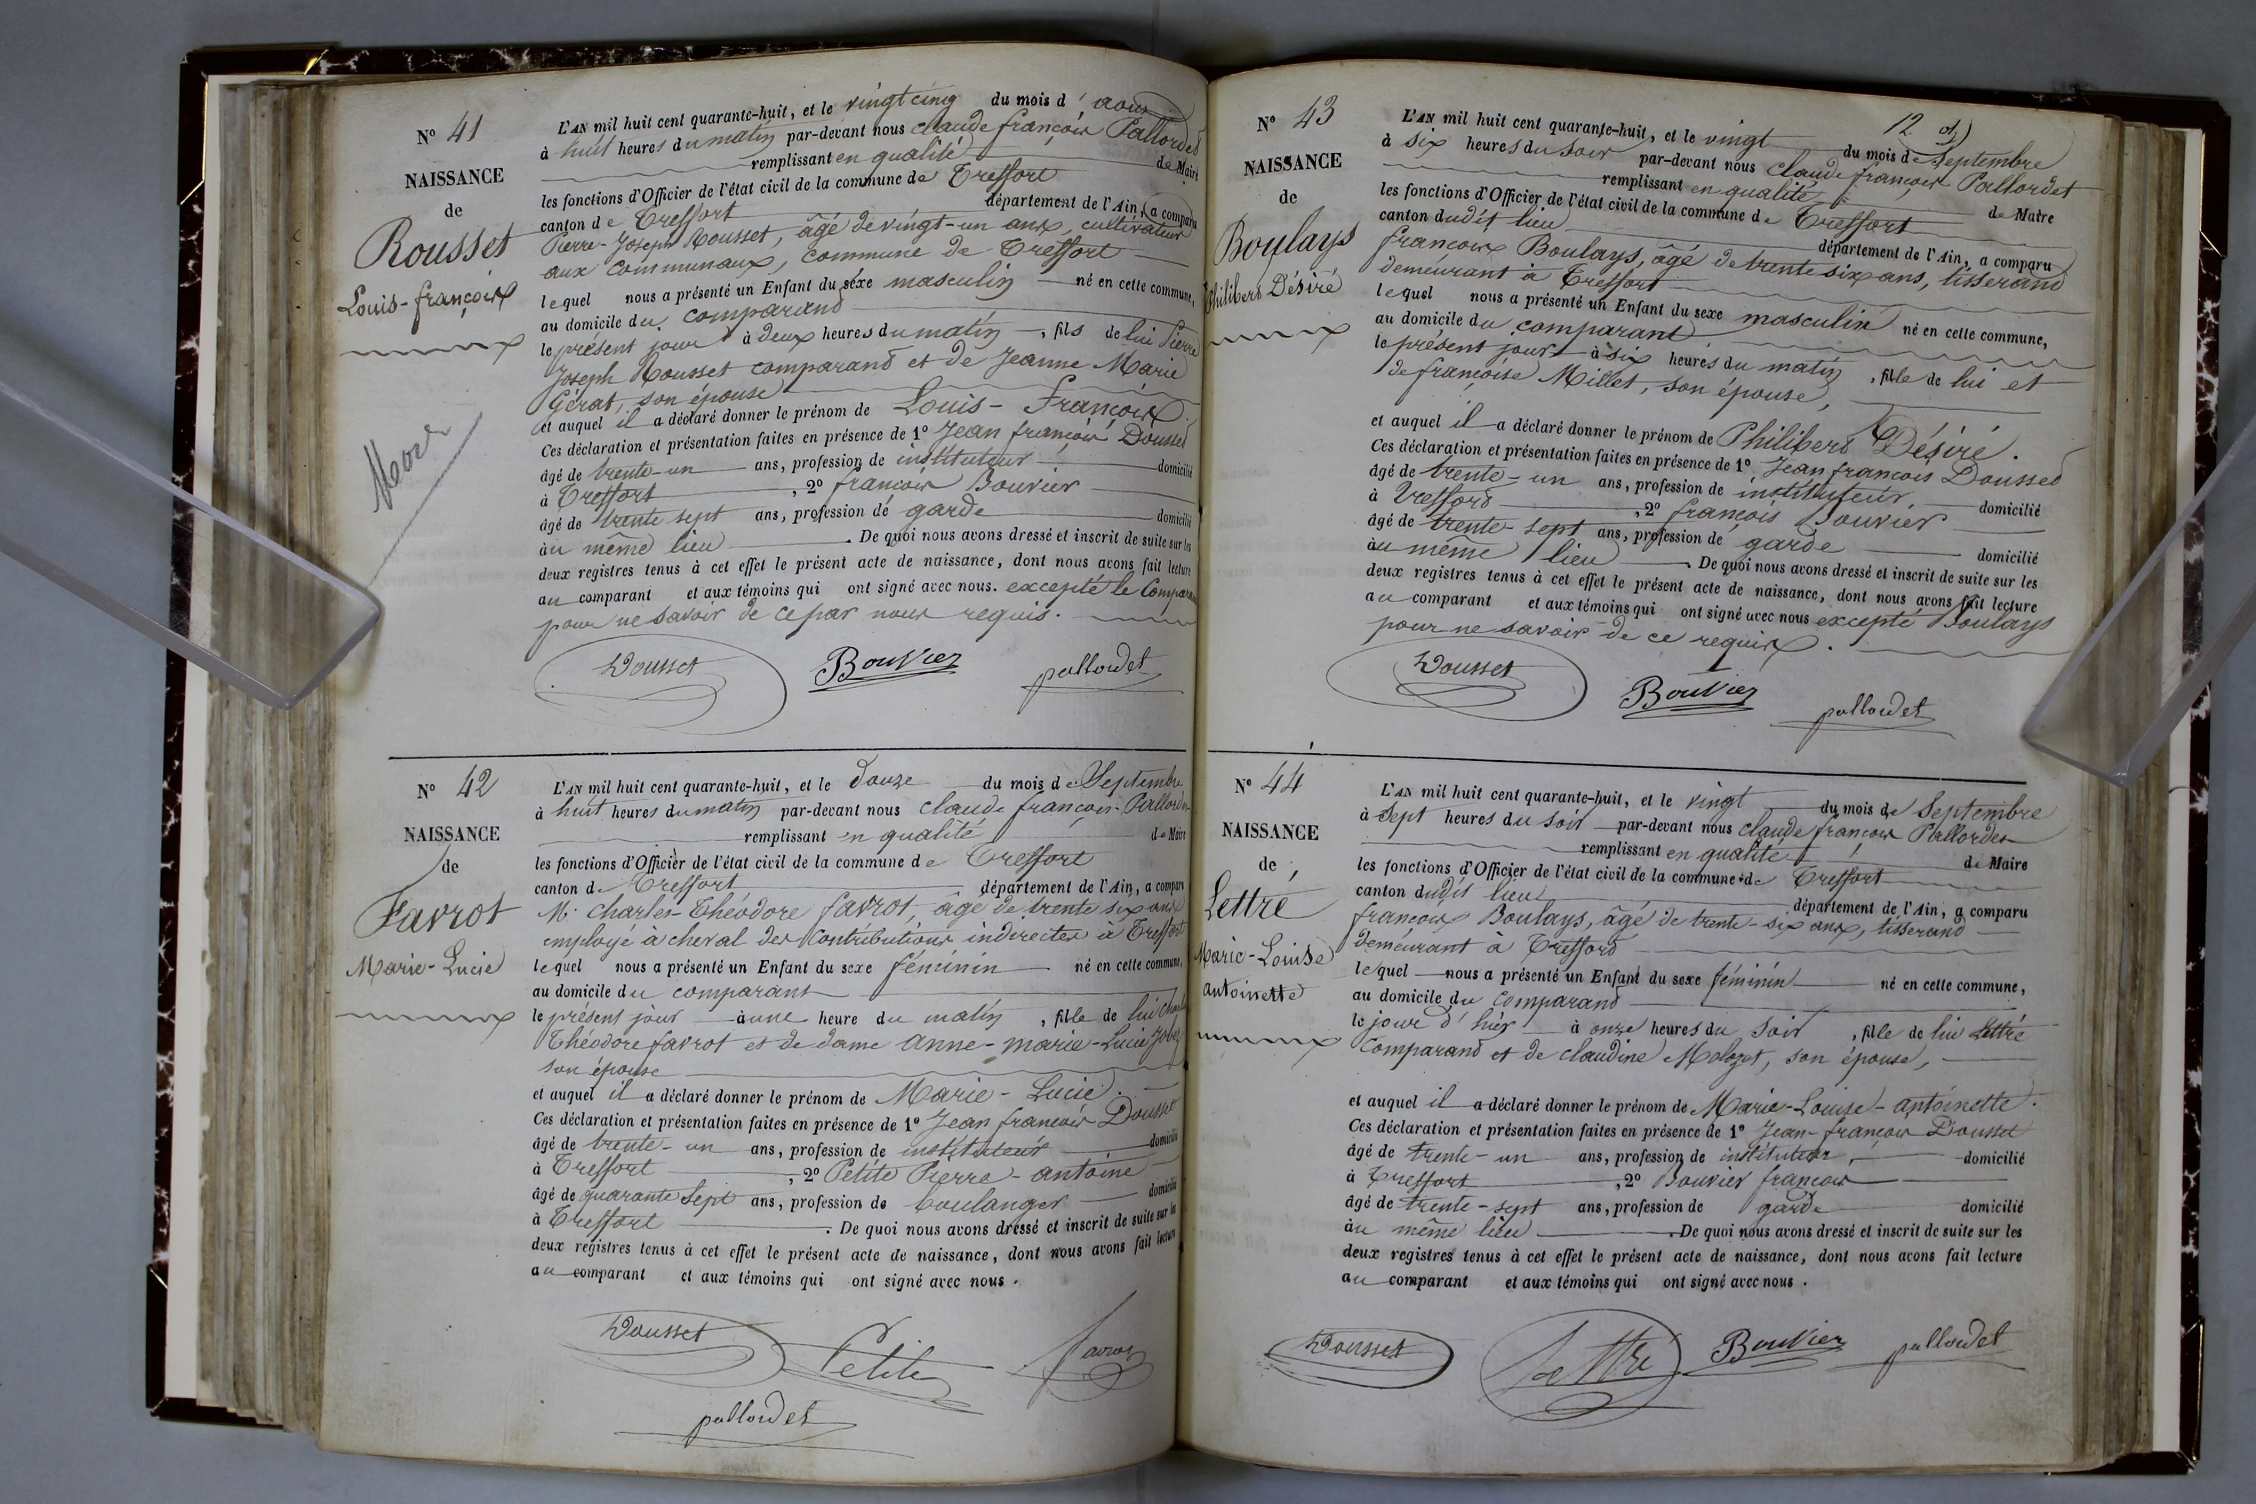 N° 41
NAISSANCE
de
Rousset
Louis-françois
Mort
L'AN mil huit cent quarante-huit, et le vingt cinq du mois d'août
à huit heures du matin par-devant nous claude françois Pallordet
remplissant en qualité de Maire
les fonctions d'Officier de l'état civil de la commune de Treffort
canton de Treffort département de l'Ain, a comparu
Pierre-Joseph Rousset, âgé de vingt-un ans, cultivateur
aux communaux, commune de Treffort
lequel nous a présenté un Enfant du sexe masculin né en cette commune,
au domicile du comparand
le présent jour à deux heures du matin, fils de lui Pierre
Joseph Rousset comparand et de Jeanne Marie
Gérat, son épouse
et auquel il a déclaré donner le prénom de Louis-François
Ces déclaration et présentation faites en présence de 1° Jean françois Dousset
âgé de trente-un ans, profession de instituteur domicilié
à Treffort, 2° françois Bouvier
âgé de trente sept ans, profession de garde domicilié
au même lieu. De quoi nous avons dressé et inscrit de suite sur les
deux registres tenus à cet effet le présent acte de naissance, dont nous avons fait lecture
au comparant et aux témoins qui ont signé avec nous. excepté le Comparant
pour ne savoir de ce par nous requis.
Dousset Bouvier pallordet
N° 42
NAISSANCE
de
Favrot
Marie-Lucie
L'AN mil huit cent quarante-huit, et le douze du mois de Septembre
à huit heures du matin par-devant nous claude françois Pallordet
remplissant en qualité de Maire
les fonctions d'Officier de l'état civil de la commune de Treffort
canton de Treffort département de l'Ain, a comparu
M. Charles-Théodore favrot, âgé de trente six ans
employé à cheval des Contributions indirectes à Treffort
lequel nous a présenté un Enfant du sexe féminin né en cette commune,
au domicile du comparant
le présent jour à une heure du matin, fille de lui Charles
Théodore favrot et de dame anne-marie-Lucie
son épouse
et auquel il a déclaré donner le prénom de Marie-Lucie.
Ces déclaration et présentation faites en présence de 1° Jean françois Dousset
âgé de trente-un ans, profession de instituteur domicilié
à Treffort, 2° Petite Pierre-antoine
âgé de quarante Sept ans, profession de boulanger domicilié
à Treffort. De quoi nous avons dressé et inscrit de suite sur les
deux registres tenus à cet effet le présent acte de naissance, dont nous avons fait lecture
au comparant et aux témoins qui ont signé avec nous.
Dousset Petite favrot
pallordet
12
N° 43
NAISSANCE
de
Boulays
Philibert Désiré
L'AN mil huit cent quarante-huit, et le vingt du mois de Septembre
à six heures du soir par-devant nous claude françois Pallordet
remplissant en qualité de Maire
les fonctions d'Officier de l'état civil de la commune de Treffort
canton dudit lieu département de l'Ain, a comparu
françois Boulays, âgé de trente six ans, tisserand
demeurant à Treffort
lequel nous a présenté un Enfant du sexe masculin né en cette commune,
au domicile du comparant
le présent jour à six heures du matin, fille de lui et
de françoise Millet, son épouse,
et auquel il a déclaré donner le prénom de Philibert Désiré.
Ces déclaration et présentation faites en présence de 1° Jean françois Dousset
âgé de trente-un ans, profession de instituteur domicilié
à Treffort, 2° françois Bouvier
âgé de trente-sept ans, profession de garde domicilié
au même lieu. De quoi nous avons dressé et inscrit de suite sur les
deux registres tenus à cet effet le présent acte de naissance, dont nous avons fait lecture
au comparant et aux témoins qui ont signé avec nous excepté Boulays
pour ne savoir de ce requis.
Dousset Bouvier pallordet
N° 44
NAISSANCE
de
Lettré
Marie-Louise
antoinette
L'AN mil huit cent quarante-huit, et le vingt du mois de Septembre
à Sept heures du soir par-devant nous claude françois Pallordet
remplissant en qualité de Maire
les fonctions d'Officier de l'état civil de la commune de Treffort
canton dudit lieu département de l'Ain, a comparu
françois Boulays, âgé de trente-six ans, tisserand
demeurant à Treffort
lequel nous a présenté un Enfant du sexe féminin né en cette commune,
au domicile du Comparand
le jour d'hier à onze heures du soir, fille de lui Lettré
Comparand et de claudine, son épouse,
et auquel il a déclaré donner le prénom de Marie-Louise-antoinette.
Ces déclaration et présentation faites en présence de 1° Jean-françois Dousset
âgé de trente-un ans, profession de instituteur, domicilié
à Treffort, 2° Bouvier françois
âgé de trente-sept ans, profession de garde domicilié
au même lieu. De quoi nous avons dressé et inscrit de suite sur les
deux registres tenus à cet effet le présent acte de naissance, dont nous avons fait lecture
au comparant et aux témoins qui ont signé avec nous.
Dousset Lettré Bouvier pallordet